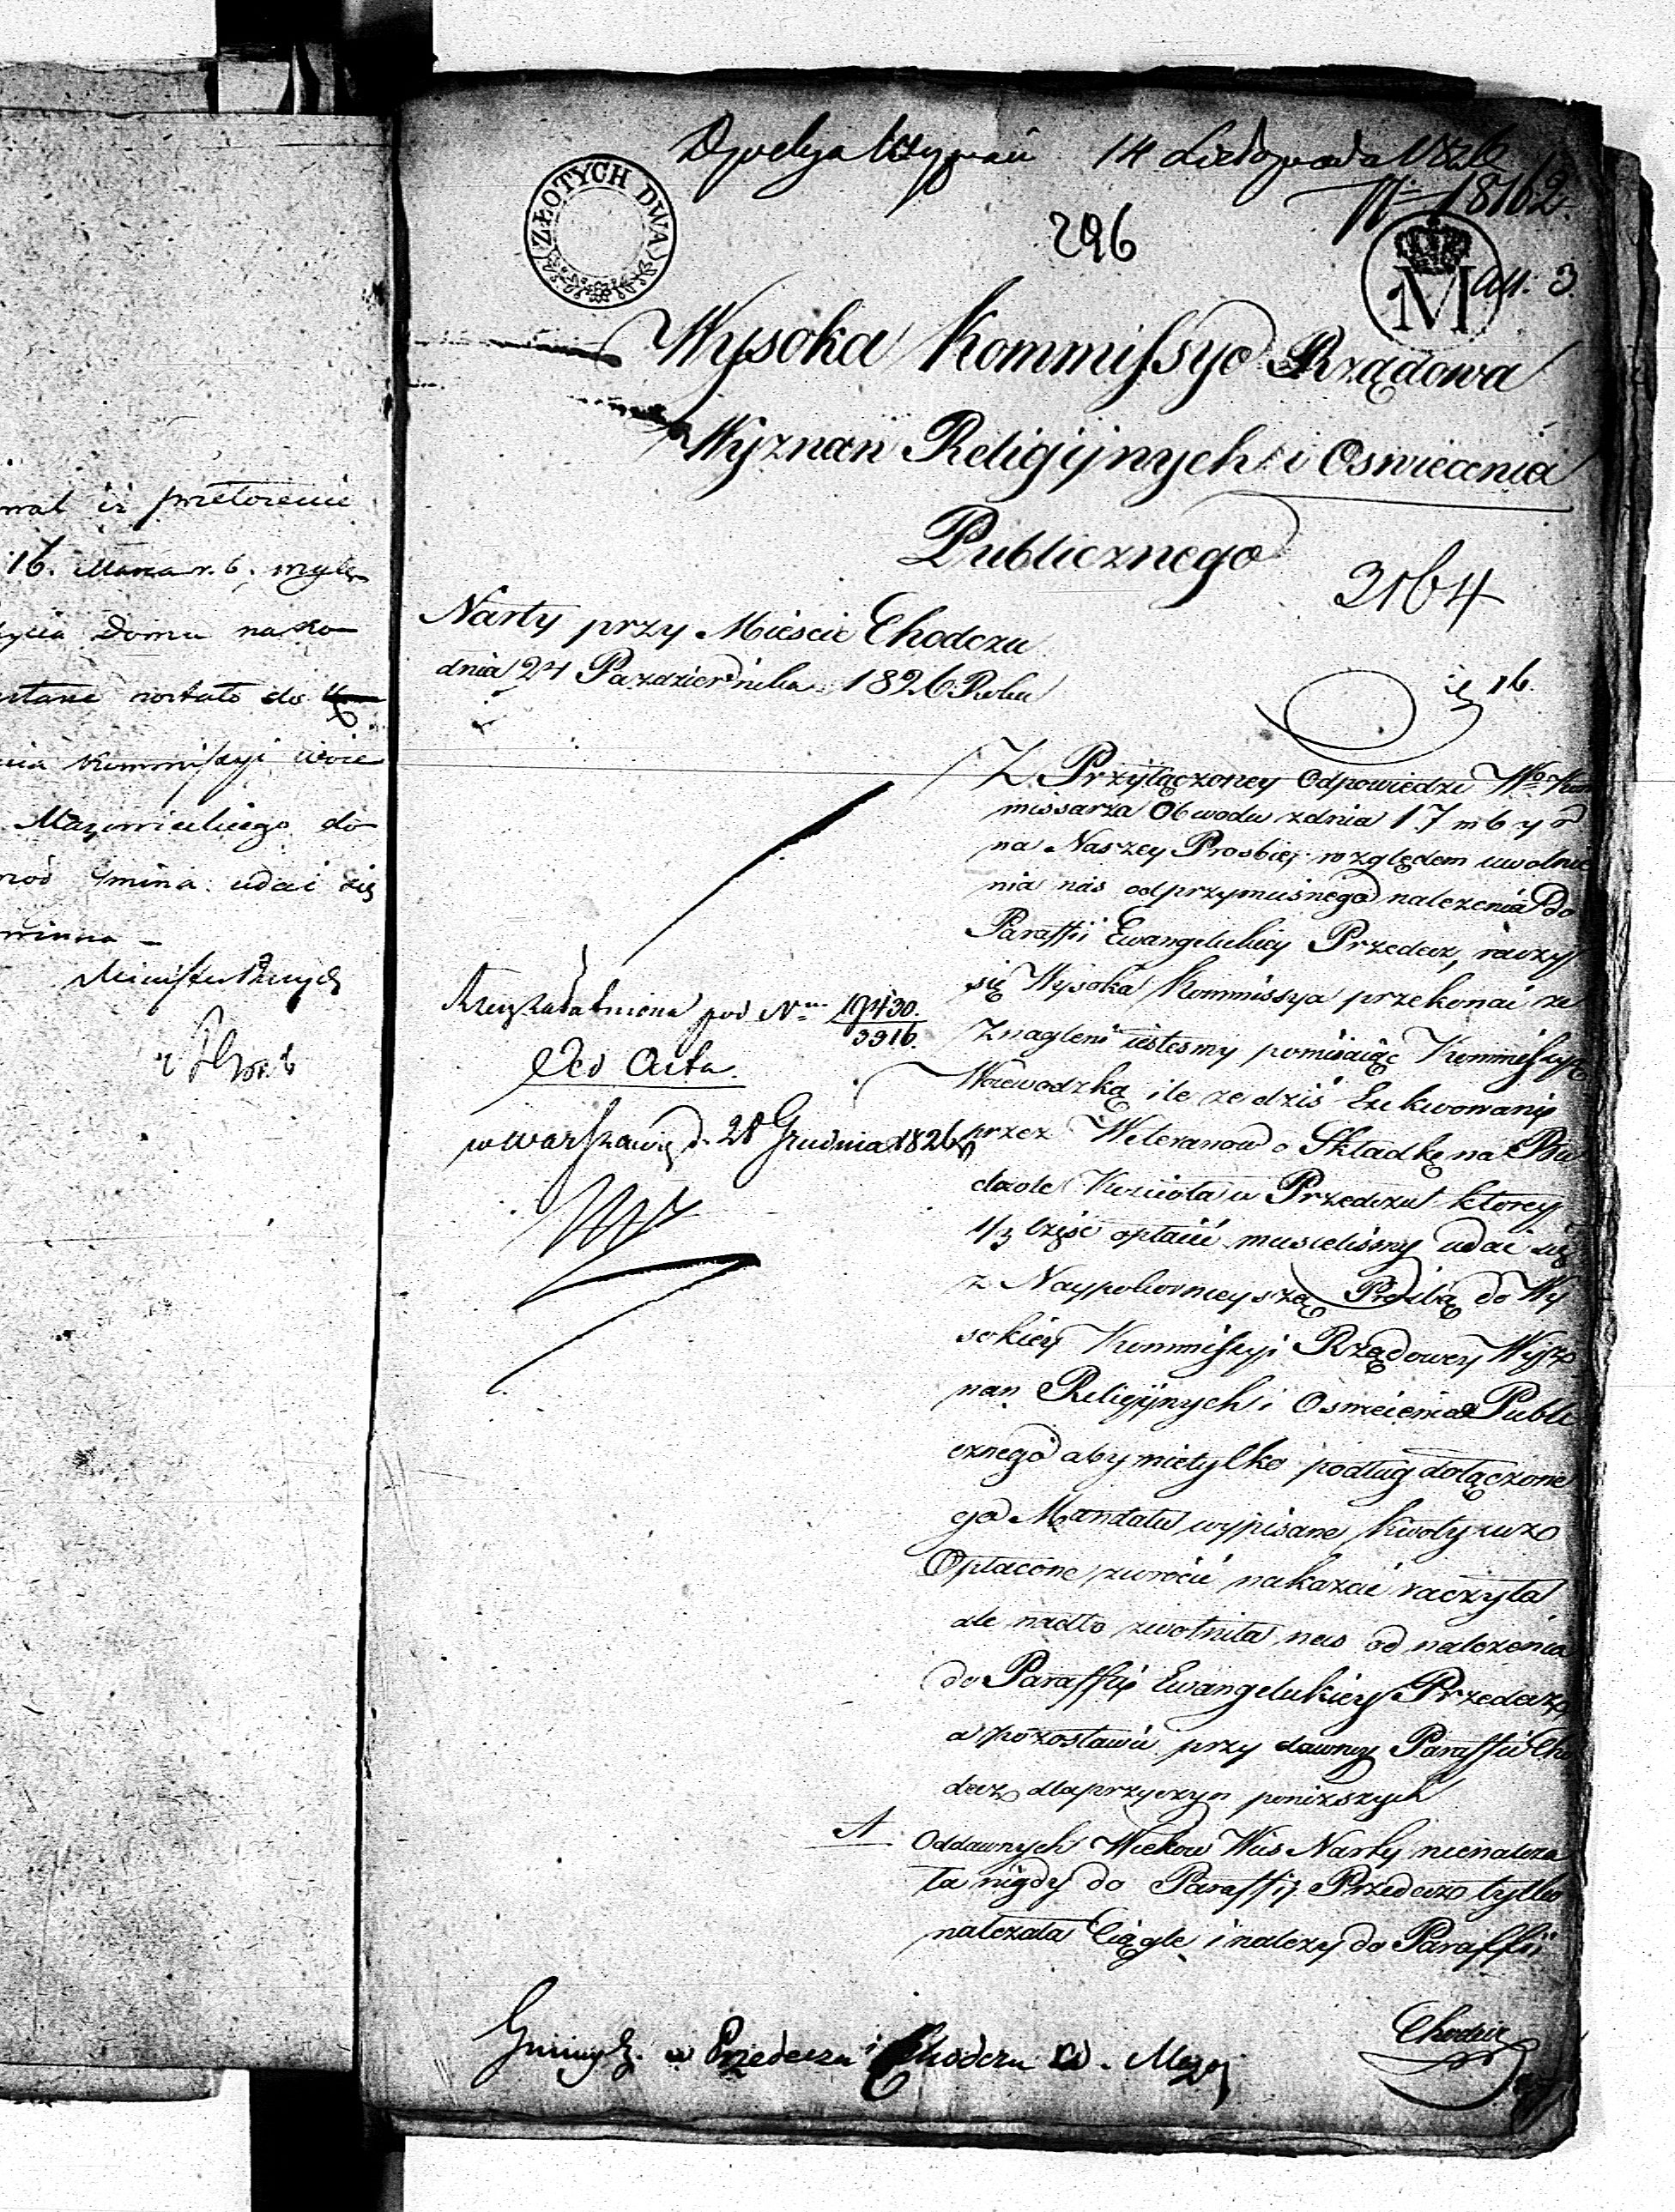 mał iż przełożenie
16. Marca r. b. wzglę
życia Domu na sko
słane zostało do
nia Kommissyi Woie
Mazowieckiego do
Gmina udać się
winna –
Minister
Dyrekcya Wyznań 14 Listopada 1826
N 18162.
ZŁOTYCH DWA
296
M
All. 3.
Wysoka Kommissyo Rządowa
Wyznań Religijnych i Oswiecenia
Publicznego
3164
Narty przy Mieście Chodczu
dnia 24 Pazdziernika 1826 Roku
16.
Z Przyłączoney Odpowiedzi Wo Kom
missarza Obwodu z dnia 17 m b y r
na Naszey Prosbie względem uwolnie
nia nas od przymusnego nalezenia do
Paraffii Ewangelickiey Przedecz, raczy
się Wysoka Kommissya przekonać ze
Znagleni iestesmy pomiiaiąc Kommissyą
Woiewodzką ile ze dziś Exekwowani
przez Weteranow o Składkę na Bu
dowle Kościoła w Przedczu ktorey
1/3 część opłacić musieliśmy udać się
z Naypokornieyszą Prozbą do Wy
sokiey Kommissyi Rządowey Wyz
nan Religijnych i Oswiecenia Publi
cznego aby nietylko podług dołączone
go Mandatu wypisane kwoty iuz
Opłacone zwrocić nakazać raczyła
ale nadto zwolniła nas od nalezenia
do Paraffii Ewangelickiey Przedecz
a pozostawić przy dawney Paraffii Cho
decz dla przyczyn ponizszych
A Oddawnych Wiekow Wies Narty nienaleza
ła nigdy do Paraffii Przedecz tylko
nalezała Ciągle i nalezy do Paraffii
Chodecz
załatwiona pod Nm 19430.
3916.
Do Acta.
w Warszawie d. 28 Grudnia 1826
w Przedeczu i Chodczu W. Maz.